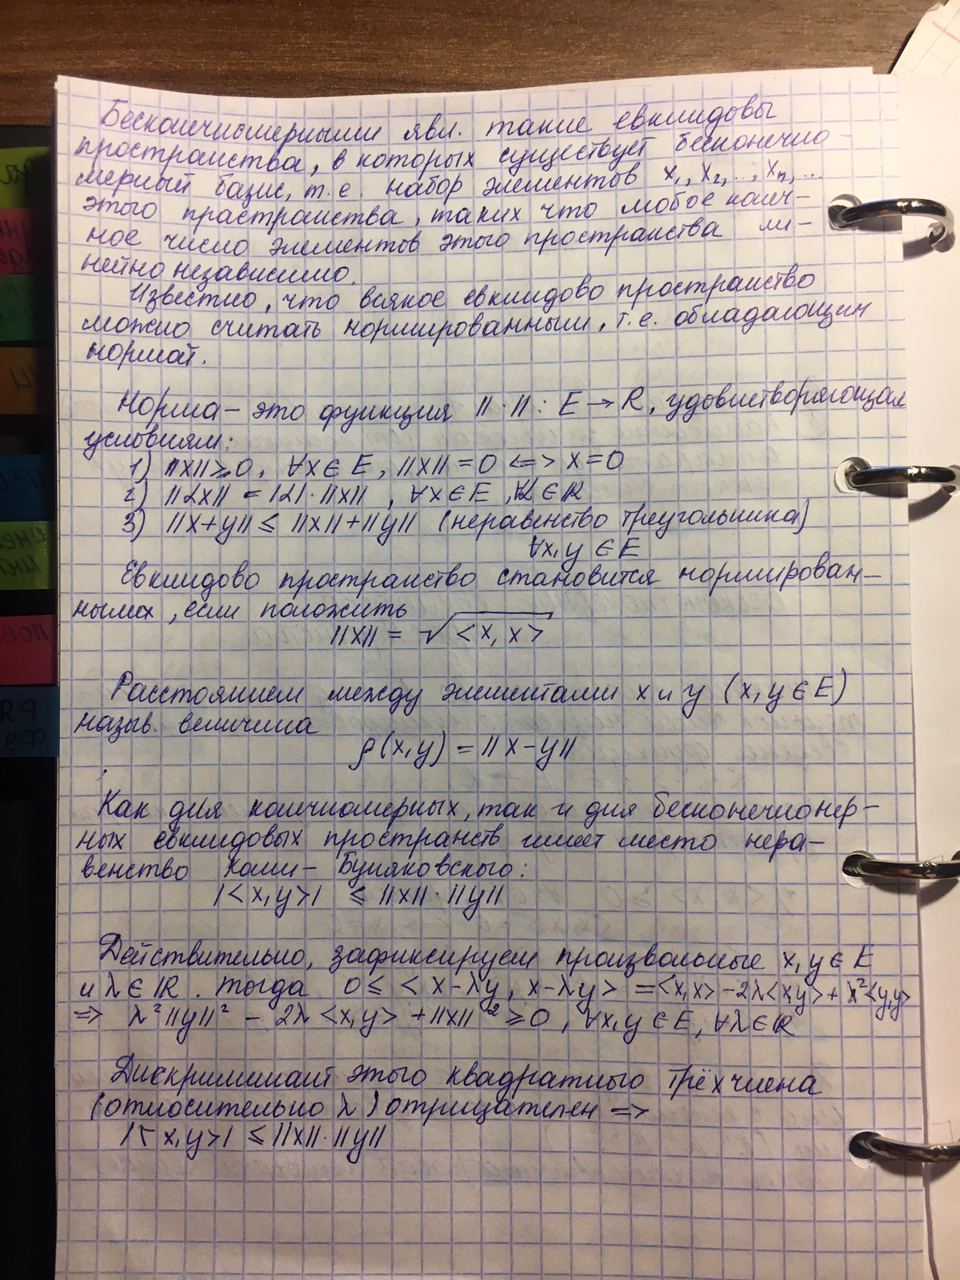 Бесконечномерными явл. такие евклидовы
пространства, в которых существует бесконечно-
мерный базис, т.е. набор элементов x₁, x₂, .., xₙ, ..
этого пространства, таких что любое конеч-
ное число элементов этого пространства ли-
нейно независимо.
Известно, что всякое евклидово пространство
можно считать нормированным, т.е. обладающим
нормой.
Норма – это функция ||·|| : E → R, удовлетворяющая
условиям:
1) ||x|| ≥ 0, ∀x ∈ E, ||x|| = 0 <=> x = 0
2) ||αx|| = |α|·||x||, ∀x ∈ E, ∀α ∈ R
3) ||x+y|| ≤ ||x|| + ||y|| (неравенство треугольника)
∀x, y ∈ E
Евклидово пространство становится нормирован-
ным, если положить
||x|| = √<x, x>
Расстоянием между элементами x и y (x, y ∈ E)
назыв. величина
ρ(x, y) = ||x – y||
Как для конечномерных, так и для бесконечномер-
ных евклидовых пространств имеет место нера-
венство Коши – Буняковского:
|<x, y>| ≤ ||x||·||y||
Действительно, зафиксируем произвольные x, y ∈ E
и λ ∈ R. Тогда 0 ≤ <x – λy, x – λy> = <x, x> – 2λ<x, y> + λ²<y, y>
=> λ²||y||² – 2λ<x, y> + ||x||² ≥ 0, ∀x, y ∈ E, ∀λ ∈ R
Дискриминант этого квадратного трёхчлена
(относительно λ) отрицателен =>
|<x, y>| ≤ ||x||·||y||